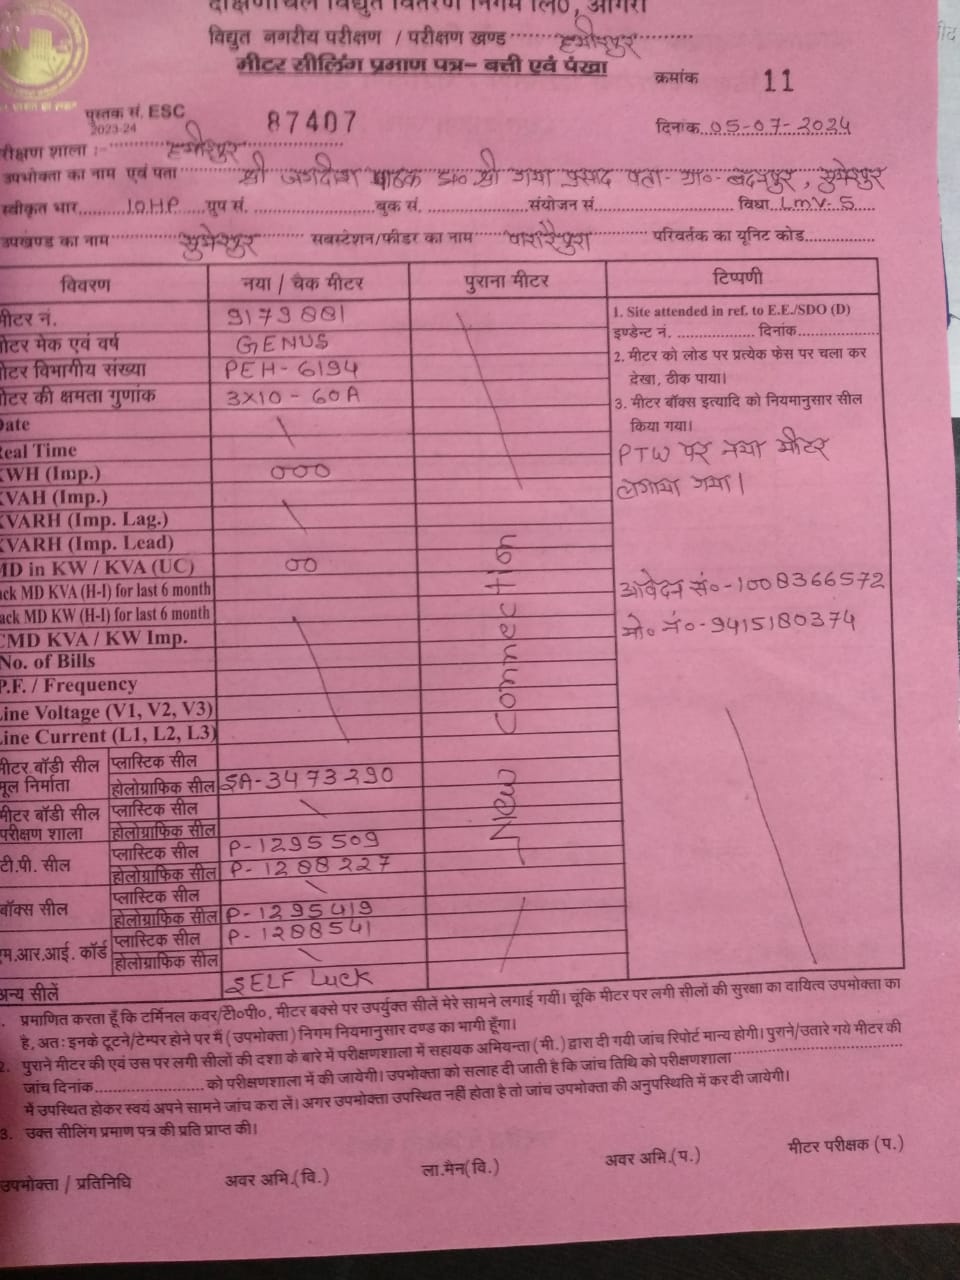 दक्षिणांचल विद्युत वितरण निगम लि०, आगरा
विद्युत नगरीय परीक्षण / परीक्षण खण्ड हमीरपुर
मीटर सीलिंग प्रमाण पत्र- बत्ती एवं पंखा
क्रमांक 11
पुस्तक सं. ESC 87407
2023-24
दिनांक 05-07-2024
रीक्षण शाला :- हमीरपुर
उपभोक्ता का नाम एवं पता श्री जगदीश पाठक S/o श्री गया प्रसाद पता- ग्रा०- बदनपुर, सुमेरपुर
स्वीकृत भार 10.H.P ग्रुप सं. बुक सं. संयोजन सं. विधा LMV-5
उपखण्ड का नाम सुमेरपुर सबस्टेशन/फीडर का नाम परिवर्तक का यूनिट कोड
विवरण नया / चैक मीटर पुराना मीटर टिप्पणी
मीटर नं. 9179881
मीटर मेक एवं वर्ष GENUS
मीटर विभागीय संख्या PEH-6194
मीटर की क्षमता गुणांक 3X10-60A
Date
Real Time
KWH (Imp.) 000
KVAH (Imp.)
KVARH (Imp. Lag.)
KVARH (Imp. Lead)
MD in KW / KVA (UC) 00
ack MD KVA (H-I) for last 6 month
ack MD KW (H-I) for last 6 month
CMD KVA / KW Imp.
No. of Bills
P.F. / Frequency
Line Voltage (V1, V2, V3)
Line Current (L1, L2, L3)
New Connection
1. Site attended in ref. to E.E./SDO (D)
इण्डेन्ट नं. दिनांक
2. मीटर को लोड पर प्रत्येक फेस पर चला कर
देखा, ठीक पाया।
3. मीटर बॉक्स इत्यादि को नियमानुसार सील
किया गया।
PTW पर नया मीटर
लगाया गया।
आवेदन सं०-1008366572
मो० नं०-9415180374
मीटर बॉडी सील प्लास्टिक सील
मूल निर्माता होलोग्राफिक सील SA-3473290
मीटर बॉडी सील प्लास्टिक सील
परीक्षण शाला होलोग्राफिक सील
टी.पी. सील प्लास्टिक सील P-1295509
होलोग्राफिक सील P-1288227
बॉक्स सील प्लास्टिक सील
होलोग्राफिक सील P-1295419
एम.आर.आई. कॉर्ड प्लास्टिक सील P-1288541
होलोग्राफिक सील
अन्य सीलें SELF Luck
1. प्रमाणित करता हूँ कि टर्मिनल कवर/टी०पी०, मीटर बक्से पर उपर्युक्त सीलें मेरे सामने लगाई गयीं। चूंकि मीटर पर लगी सीलों की सुरक्षा का दायित्व उपभोक्ता का
है, अतः इनके टूटने/टेम्पर होने पर मैं (उपभोक्ता) निगम नियमानुसार दण्ड का भागी हूँगा।
2. पुराने मीटर की एवं उस पर लगी सीलों की दशा के बारे में परीक्षणशाला में सहायक अभियन्ता (मी.) द्वारा दी गयी जांच रिपोर्ट मान्य होगी। पुराने/उतारे गये मीटर की
जांच दिनांक को परीक्षणशाला में की जायेगी। उपभोक्ता को सलाह दी जाती है कि जांच तिथि को परीक्षणशाला
में उपस्थित होकर स्वयं अपने सामने जांच करा लें। अगर उपभोक्ता उपस्थित नहीं होता है तो जांच उपभोक्ता की अनुपस्थिति में कर दी जायेगी।
3. उक्त सीलिंग प्रमाण पत्र की प्रति प्राप्त की।
उपभोक्ता / प्रतिनिधि अवर अभि.(वि.) ला.मैन(वि.) अवर अभि.(प.) मीटर परीक्षक (प.)